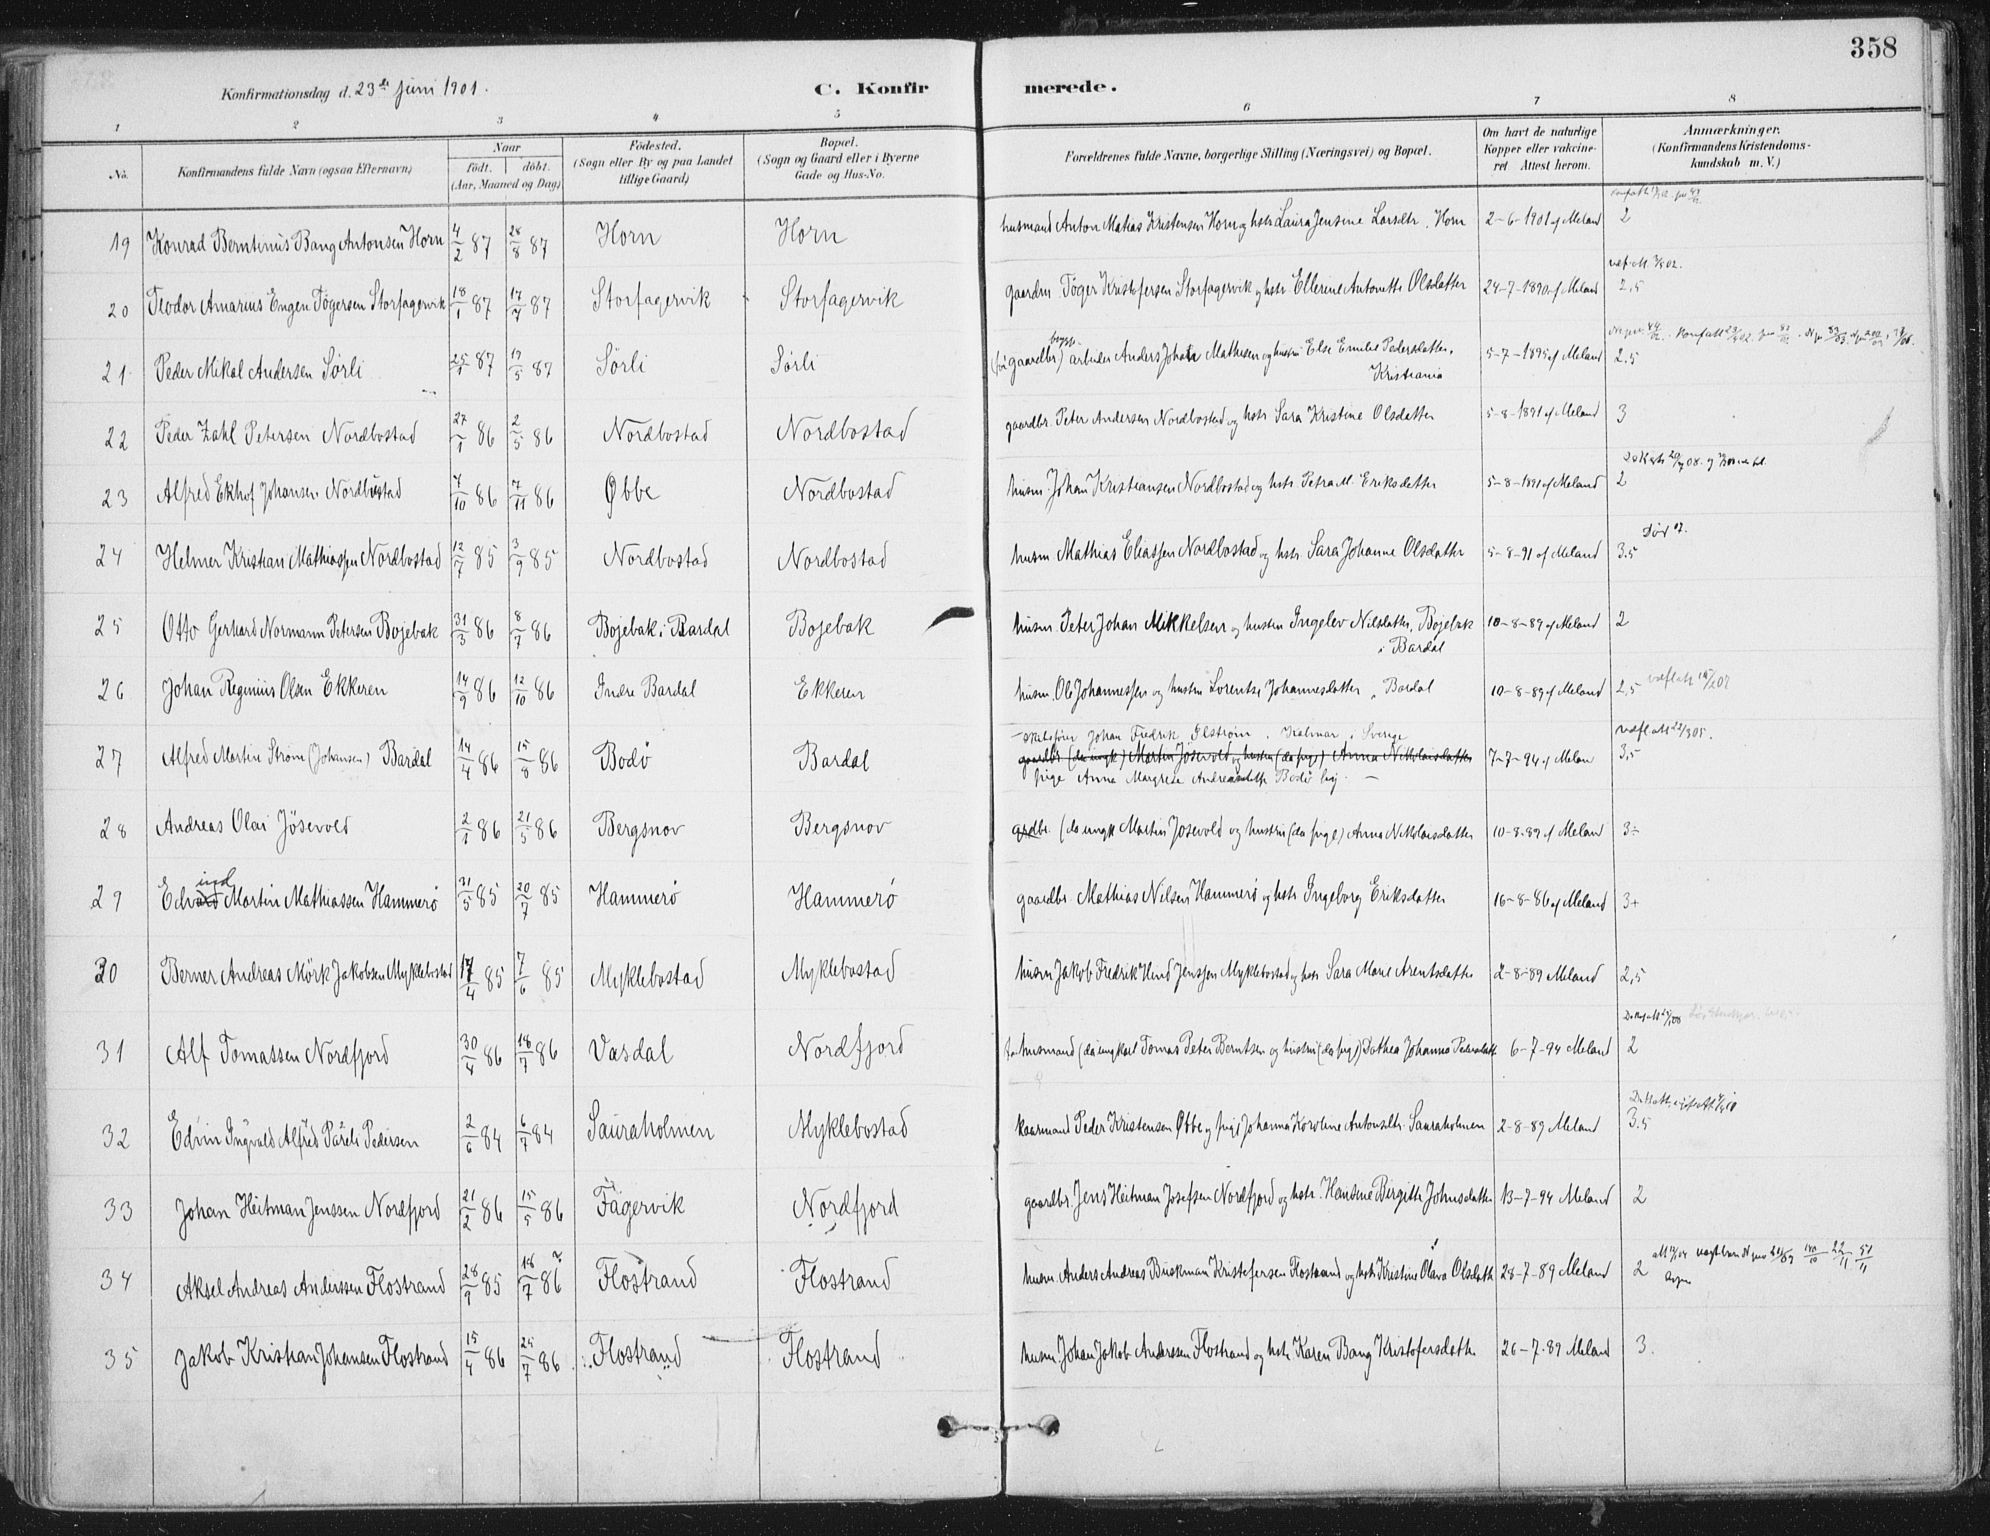 358
Konfirmationsdag d. 23de juni 1901.
C. Konfirmerede.
1 2 3 4 5 6 7 8
No. Konfirmandens fulde Navn (ogsaa Efternavn) Naar födt. döbt. (Aar, Maaned og Dag) Födested. (Sogn eller By og paa Landet tillige Gaard) Bopæl. (Sogn og Gaard eller i Byerne Gade og Hus-No. Forældrenes fulde Navne, borgerlige Stilling (Næringsvei) og Bopæl. Om havt de naturlige Kopper eller vakcineret Attest herom. Anmærkninger. (Konfirmandens Kristendomskundskab m. V.)
19 Konrad Berntinus Bang Antonsen Horn 4/2 87 28/8 87 Horn Horn husmand Anton Matias Kristensen Horn og hstr Laura Jensine Larsdtr. Horn 2-6-1901 af Meland 2
20 Teodor Amarius Engen Tögersen Storfagervik 18/1 87 17/4 87 Storfagervik Storfagervik gaardm. Töger Kristofersen Storfagervik og hstr Ellerine Antonette Olsdatter 24-7-1890 af Meland 2,5
21 Peder Mikal Andersen Sörli 25/1 87 19/5 87 Sörli Sörli (før gaardbr) arbeider Anders Johan Mathisen og hustru Else Emilie Pedersdatter, 5-7-1895 af Meland 2.5
Kristiania
22 Peder Zahl Petersen Nordbostad 27/1 86 2/5 86 Nordbostad Nordbostad gaardbr. Peter Andersen Nordbostad og hstr Sara Kristine Olsdatter 5-8-1891 af Meland 3
23 Alfred Ekhof Johansen Nordbustad 7/10 86 7/11 86 Øbbe Nordbostad husm. Johan Kristiansen Nordbostad og hstr. Petra M. Eriksdatter 5-8-1891 af Meland 2
Død
24 Helmer Kristian Mathiassen Nordbostad 12/7 85 3/9 85 Nordbostad Nordbostad husm Mathias Eliassen Nordbostad og hstr Sara Johanne Olsdatter 5-8-91 af Meland 3.5
25 Otto Gerhard Normann Petersen Bojebak 31/3 86 8/7 86 Bojebak i Bardal Bojebak husm Peter Johan Mikkelsen og hustru Ingelev Nilsdatter, Bojebak 10-8-89 af Meland 2
i Bardal
26 Johan Reginius Olsen Ekkeren 14/9 86 12/10 86 Indre Bardal Ekkeren husm. Ole Johannessen og hustru Lorentse Johannesdatter, Bardal 10-8-89 af Meland 2,5
Johan Fredrik Elström. Kalmar i Sverige
27 Alfred Martin Strøm (Johansen) Bardal 14/4 86 15/8 86 Bodö Bardal gaardbr (da ungk) Martin Jösevold og hustru (da pige) Anna Nikolaisdatter 7-7-94 af Melan 3,5
pige Anna Margrete Andreasdatter Bodö
28 Andreas Olai Jösevold 2/1 86 21/5 86 Bergsnov Bergsnov grdbr. (da ungk Martin Josevold og hustru (da pige) Anna Nikolaisdatter 10-8-89 af Meland 3÷
ind
29 Edvard Martin Mathiassen Hammerö 31/5 85 20/7 85 Hammerö Hammerö gaardbr. Mathias Nilsen Hammerö og hstr Ingeborg Eriksdatter 16-8-86 af Meland 3+
30 Berner Andreas Mörk Jakobsen Myklebostad 17/4 85 7/6 85 Myklebostad Myklebostad husm Jakob Fredrik Hind Jenssen Myklebostad og hstr Sara Marie Arentsdatter 2-8-89 Meland 2,5
31 Alf Tomassen Nordfjord 30/4 86 18/7 86 Vasdal Nordfjord husmand (da ungkarl Tomas Peter Berntsen og hustru (da pige) Dorthea Johanna Pedersdatter 6-7-94 Meland 2
32 Edvin Ingvald Alfred Pareli Pedersen 2/6 84 6/7 84 Sauraholmen Myklebostad kaarmand Peder Kristensen Øbbe og pige Johanna Karoline Antonsdtr. Sauraholmen 2-8-89 Meland 3.5
33 Johan Heitman Jenssen Nordfjord 21/2 86 15/5 86 Fagervik Nordfjord gaardbr. Jens Heitman Josefsen Nordfjord og hstr. Hansine Birgitte Johnsdatter 13-7-94 Meland 2
34 Aksel Andreas Anderssen Flostrand 28/9 85 18/7 86 ? Flostrand Flostrand husm. Anders Andreas Buskman Kristofersen Flostrand og hstr Kristine Olava Olsdatter 28-7-89 Meland 2
35 Jakob Kristian Johansen Flostrand 15/4 86 25/7 86 Flostrand Flostrand husm. Johan Jakob Andresen Flostrand og hstr. Karen Bang Kristofersdatter 26-7-89 Meland 3.